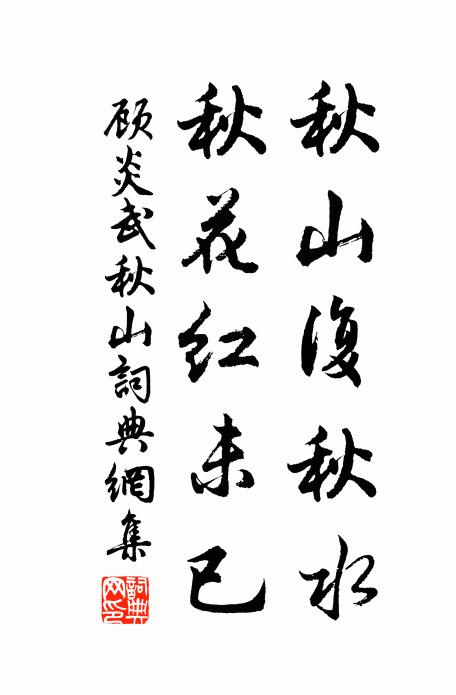 秋山復秋水
秋花紅未已
顾炎武秋山詞典網集
詞典
网印